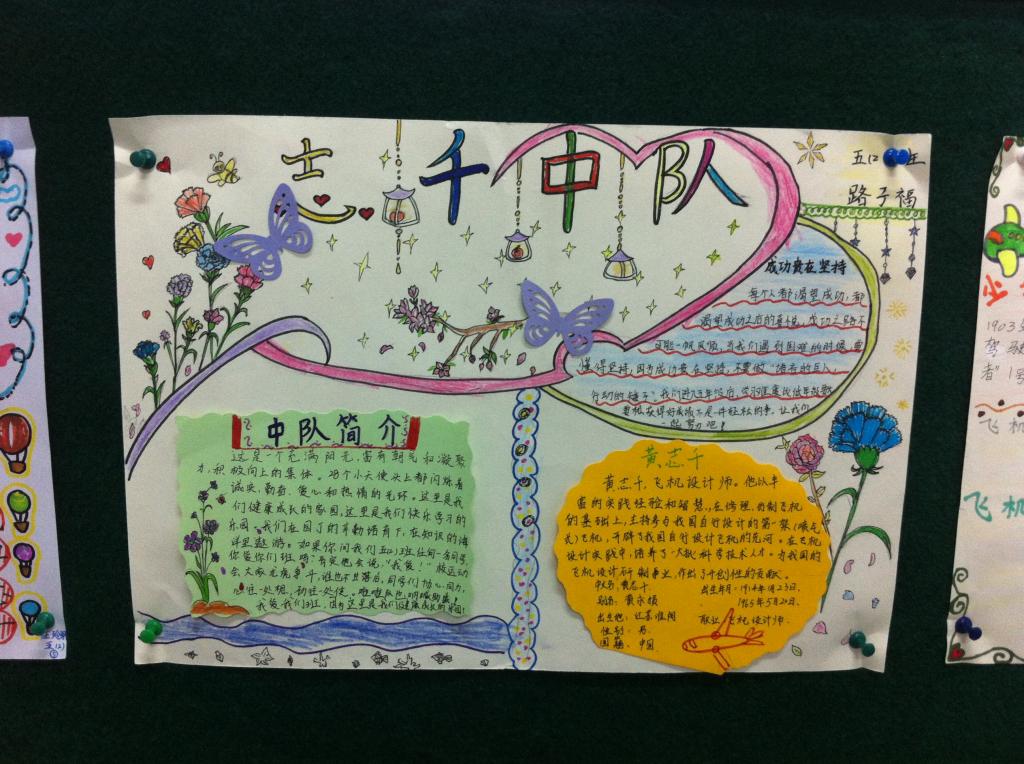 志千中队
五(2)班
路子福
成功贵在坚持
每个人都渴望成功,都
渴望成功之后的喜悦,成功之路不
可能一帆风顺,当我们遇到困难的时候,要
懂得坚持,因为成功贵在坚持,不要做“语言的巨人,
行动的矮子”。我们进入五年级后,学习难度比低年级
要想获得好成绩不是件轻松的事,让我们
一起努力吧!
中队简介
这是一个充满阳光,富有朝气和凝聚
力,积极向上的集体。45个小天使头上都闪烁着
诚实,勤奋,爱心和热情的光环。这里是我
们健康成长的家园,这里是我们快乐学习的
乐园。我们在园丁的辛勤培育下,在知识的海
洋里遨游。如果你问我们五(2)班任何一名同学,
你爱你们班吗?有定他会说,“我爱!”校运动
会大家龙虎争斗,谁也不甘落后,同学们协心同力,
我爱我们班,因为这里是我们健康成长的家园!
黄志千
黄志千,飞机设计师。他以丰
富的实践经验和智慧,在修理,仿制飞机
的基础上,主持参与我国自行设计的第一架(喷气
式)飞机,开辟了我国自行设计飞机的先河。在飞机
设计实践中,培养了大批科学技术人才。为我国的
飞机设计研制事业,作出了开创性的贡献。
姓名:黄志千
出生年月:1914年1月23日,
1965年5月20日,
出生地:江苏淮阴
职业:飞机设计师
性别:男
国籍:中国
五(2)
1903
驾驶
者”1号
飞机
飞机